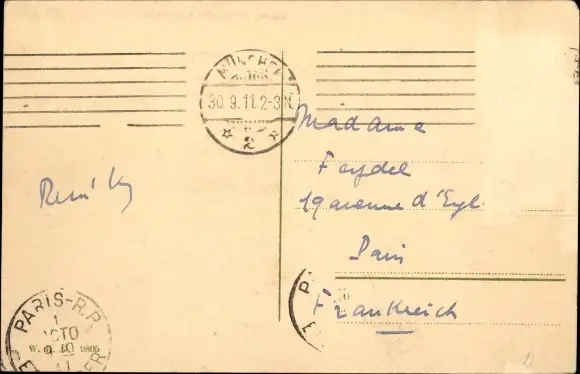 MÜNCHEN
30.9.11.2-3N.
2
Madame
Feydel
19 avenue d'Eyl.
Paris
Frankreich
René
PARIS-R.P
1
OCTO
11